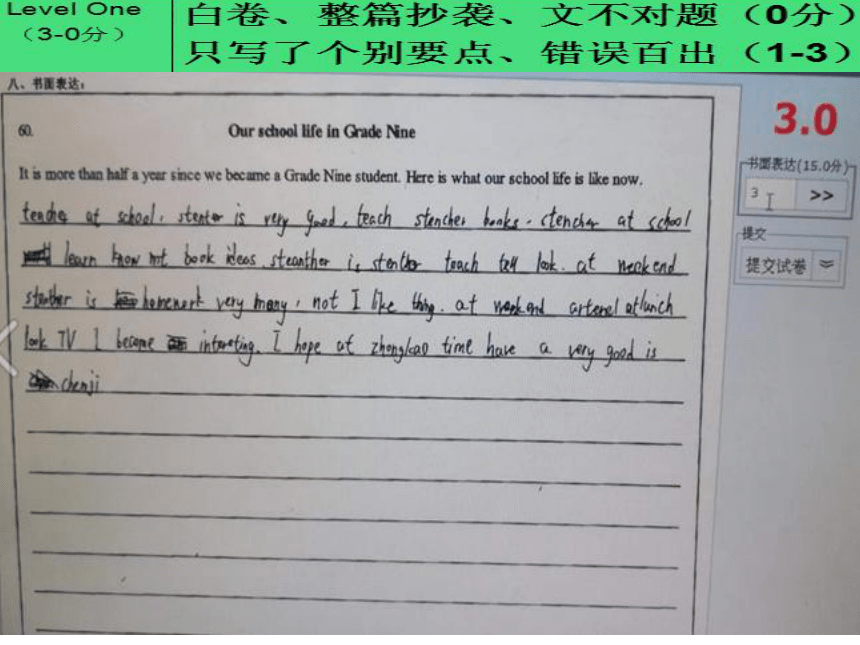 Level One
（3-0分）
白卷、整篇抄袭、文不对题（0分）
只写了个别要点、错误百出（1-3）
八、书面表达:
60.
Our school life in Grade Nine
It is more than half a year since we became a Grade Nine student. Here is what our school life is like now.
at school, is very good, teach stencher books. ctencher at school
learn know not book ideas. steanther is teach tell look. at weekend
is homenork very many, not I like thing. at weekend at lunch
look TV I become interting. I hope at zhongkao time have a very good is
chenji
3.0
书面表达(15.0分)
3 >>
提交
提交试卷